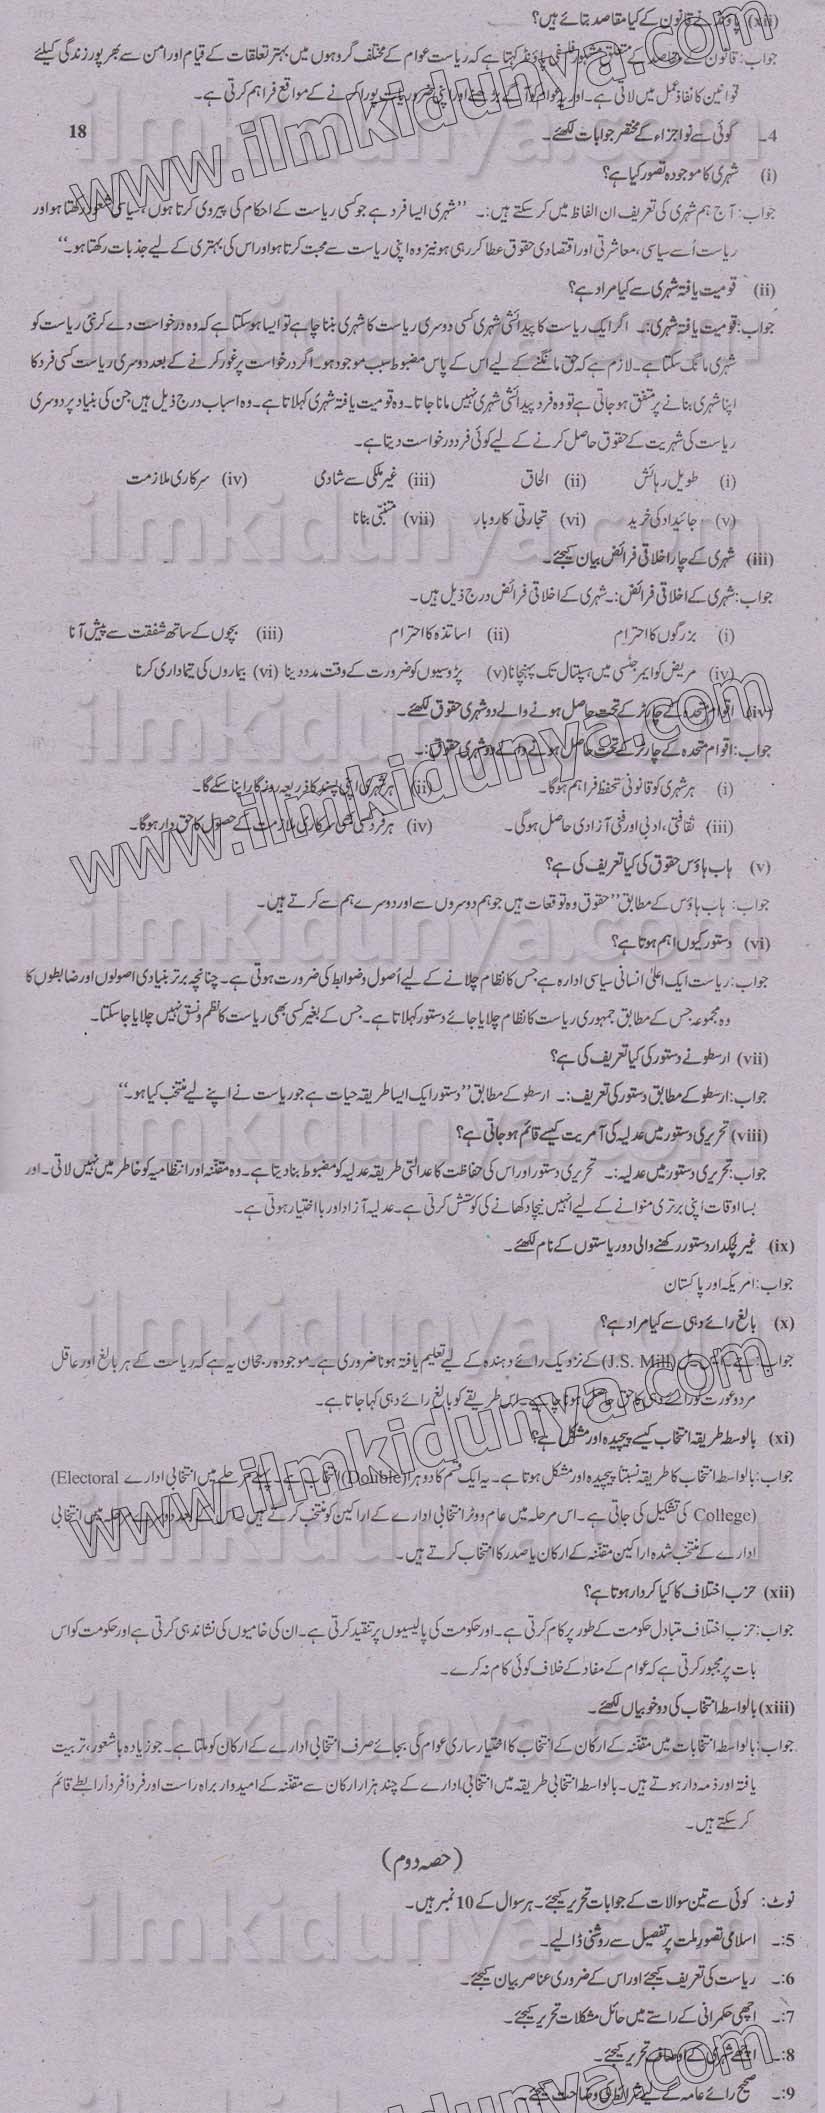 (xii) پاؤنڈ نے قانون کے کیا مقاصد بتائے ہیں؟
جواب: قانون کے مقاصد کے متعلق مشہور فلسفی پاؤنڈ کہتا ہے کہ ریاست عوام کے مختلف گروہوں میں بہتر تعلقات کے قیام اور امن سے بھرپور زندگی کیلئے
قوانین کا نفاذ عمل میں لاتی ہے۔ اور یہ عوام کو آگے بڑھنے اور اپنی ضروریات پورا کرنے کے مواقع فراہم کرتی ہے۔
4۔ کوئی سے نو اجزاء کے مختصر جوابات لکھئے۔ 18
(i) شہری کا موجودہ تصور کیا ہے؟
جواب: آج ہم شہری کی تعریف ان الفاظ میں کر سکتے ہیں:۔ ”شہری ایسا فرد ہے جو کسی ریاست کے احکام کی پیروی کرتا ہوں، سیاسی شعور رکھتا ہو اور
ریاست اُسے سیاسی، معاشرتی اور اقتصادی حقوق عطا کر رہی ہو نیز وہ اپنی ریاست سے محبت کرتا ہو اور اس کی بہتری کے لیے جذبات رکھتا ہو۔“
(ii) قومیت یافتہ شہری سے کیا مراد ہے؟
جواب: قومیت یافتہ شہری:۔ اگر ایک ریاست کا پیدائشی شہری کسی دوسری ریاست کا شہری بننا چاہے تو ایسا ہو سکتا ہے کہ وہ درخواست دے کر نئی ریاست کو
شہری مانگ سکتا ہے۔ لازم ہے کہ حق مانگنے کے لیے اس کے پاس مضبوط سبب موجود ہو۔ اگر درخواست پر غور کرنے کے بعد دوسری ریاست کسی فرد کا
اپنا شہری بنانے پر متفق ہو جاتی ہے تو وہ فرد پیدائشی شہری نہیں مانا جاتا۔ وہ قومیت یافتہ شہری کہلاتا ہے۔ وہ اسباب درج ذیل ہیں جن کی بنیاد پر دوسری
ریاست کی شہریت کے حقوق حاصل کرنے کے لیے کوئی فرد درخواست دیتا ہے۔
(i) طویل رہائش (ii) الحاق (iii) غیر ملکی سے شادی (iv) سرکاری ملازمت
(v) جائیداد کی خرید (vi) تجارتی کاروبار (vii) متبنیٰ بنانا
(iii) شہری کے چار اخلاقی فرائض بیان کیجئے۔
جواب: شہری کے اخلاقی فرائض:۔ شہری کے اخلاقی فرائض درج ذیل ہیں۔
(i) بزرگوں کا احترام (ii) اساتذہ کا احترام (iii) بچوں کے ساتھ شفقت سے پیش آنا
(iv) مریض کو ایمرجنسی میں ہسپتال تک پہنچانا (v) پڑوسیوں کو ضرورت کے وقت مدد دینا (vi) بیماروں کی تیمارداری کرنا
(iv) اقوام متحدہ کے چارٹر کے تحت حاصل ہونے والے دو شہری حقوق لکھئے۔
جواب: اقوام متحدہ کے چارٹر کے تحت حاصل ہونے والے دو شہری حقوق:۔
(i) ہر شہری کو قانونی تحفظ فراہم ہو گا۔ (ii) ہر شہری اپنی پسند کا ذریعہ روزگار اپنا سکے گا۔
(iii) ثقافتی، ادبی اور فنی آزادی حاصل ہو گی۔ (iv) ہر فرد کسی بھی سرکاری ملازمت کے حصول کا حق دار ہو گا۔
(v) ہاب ہاؤس حقوق کی کیا تعریف کی ہے؟
جواب: ہاب ہاؤس کے مطابق ”حقوق وہ توقعات ہیں جو ہم دوسروں سے اور دوسرے ہم سے کرتے ہیں۔
(vi) دستور کیوں اہم ہوتا ہے؟
جواب: ریاست ایک اعلیٰ انسانی سیاسی ادارہ ہے جس کا نظام چلانے کے لیے اُصول و ضوابط کی ضرورت ہوتی ہے۔ چنانچہ برتر بنیادی اصولوں اور ضابطوں کا
وہ مجموعہ جس کے مطابق جمہوری ریاست کا نظام چلایا جائے دستور کہلاتا ہے۔ جس کے بغیر کسی بھی ریاست کا نظم و نسق نہیں چلایا جا سکتا۔
(vii) ارسطو نے دستور کی کیا تعریف کی ہے؟
جواب: ارسطو کے مطابق دستور کی تعریف:۔ ارسطو کے مطابق ”دستور ایک ایسا طریقہ حیات ہے جو ریاست نے اپنے لیے منتخب کیا ہو۔“
(viii) تحریری دستور میں عدلیہ کی آمریت کیسے قائم ہو جاتی ہے؟
جواب: تحریری دستور میں عدلیہ:۔ تحریری دستور اور اس کی حفاظت کا عدالتی طریقہ عدلیہ کو مضبوط بنا دیتا ہے۔ وہ مقننہ اور انتظامیہ کو خاطر میں نہیں لاتی۔ اور
بسا اوقات اپنی برتری منوانے کے لیے انہیں نیچا دکھانے کی کوشش کرتی ہے۔ عدلیہ آزاد اور با اختیار ہوتی ہے۔
(ix) غیر لچکدار دستور رکھنے والی دو ریاستوں کے نام لکھئے۔
جواب: امریکہ اور پاکستان
(x) بالغ رائے دہی سے کیا مراد ہے؟
جواب: جے۔ ایس۔ مل (J.S. Mill) کے نزدیک رائے دہندہ کے لیے تعلیم یافتہ ہونا ضروری ہے۔ موجودہ رجحان یہ ہے کہ ریاست کے ہر بالغ اور عاقل
مرد و عورت کو رائے دہی کا حق حاصل ہونا چاہیے۔ اس طریقے کو بالغ رائے دہی کہا جاتا ہے۔
(xi) بالواسطہ طریقہ انتخاب کیسے پیچیدہ اور مشکل ہے؟
جواب: بالواسطہ انتخاب کا طریقہ نسبتاً پیچیدہ اور مشکل ہوتا ہے۔ یہ ایک قسم کا دوہرا (Double) انتخاب ہے۔ پہلے مرحلے میں انتخابی ادارے (Electoral
College) کی تشکیل کی جاتی ہے۔ اس مرحلہ میں عام ووٹر انتخابی ادارے کے اراکین کو منتخب کرتے ہیں۔ اس کے بعد دوسرے مرحلہ میں انتخابی
ادارے کے منتخب شدہ اراکین مقننہ کے ارکان یا صدر کا انتخاب کرتے ہیں۔
(xii) حزب اختلاف کا کیا کردار ہوتا ہے؟
جواب: حزب اختلاف متبادل حکومت کے طور پر کام کرتی ہے۔ اور حکومت کی پالیسیوں پر تنقید کرتی ہے۔ ان کی خامیوں کی نشاندہی کرتی ہے اور حکومت کو اس
بات پر مجبور کرتی ہے کہ عوام کے مفاد کے خلاف کوئی کام نہ کرے۔
(xiii) بالواسطہ انتخاب کی دو خوبیاں لکھئے۔
جواب: بالواسطہ انتخابات میں مقننہ کے ارکان کے انتخاب کا اختیار ساری عوام کی بجائے صرف انتخابی ادارے کے ارکان کو ملتا ہے۔ جو زیادہ باشعور، تربیت
یافتہ اور ذمہ دار ہوتے ہیں۔ بالواسطہ انتخابی طریقہ میں انتخابی ادارے کے چند ہزار ارکان سے مقننہ کے امیدوار براہ راست اور فرداً فرداً رابطے قائم
کر سکتے ہیں۔
(حصہ دوم)
نوٹ: کوئی سے تین سوالات کے جوابات تحریر کیجئے۔ ہر سوال کے 10 نمبر ہیں۔
5:۔ اسلامی تصور ملت پر تفصیل سے روشنی ڈالیے۔
6:۔ ریاست کی تعریف کیجئے اور اس کے ضروری عناصر بیان کیجئے۔
7:۔ اچھی حکمرانی کے راستے میں حائل مشکلات تحریر کیجئے۔
8:۔ اچھے شہری کے اوصاف تحریر کیجئے۔
9:۔ صحیح رائے عامہ کے لیے شرائط کی وضاحت کیجئے۔
www.ilmkidunya.com